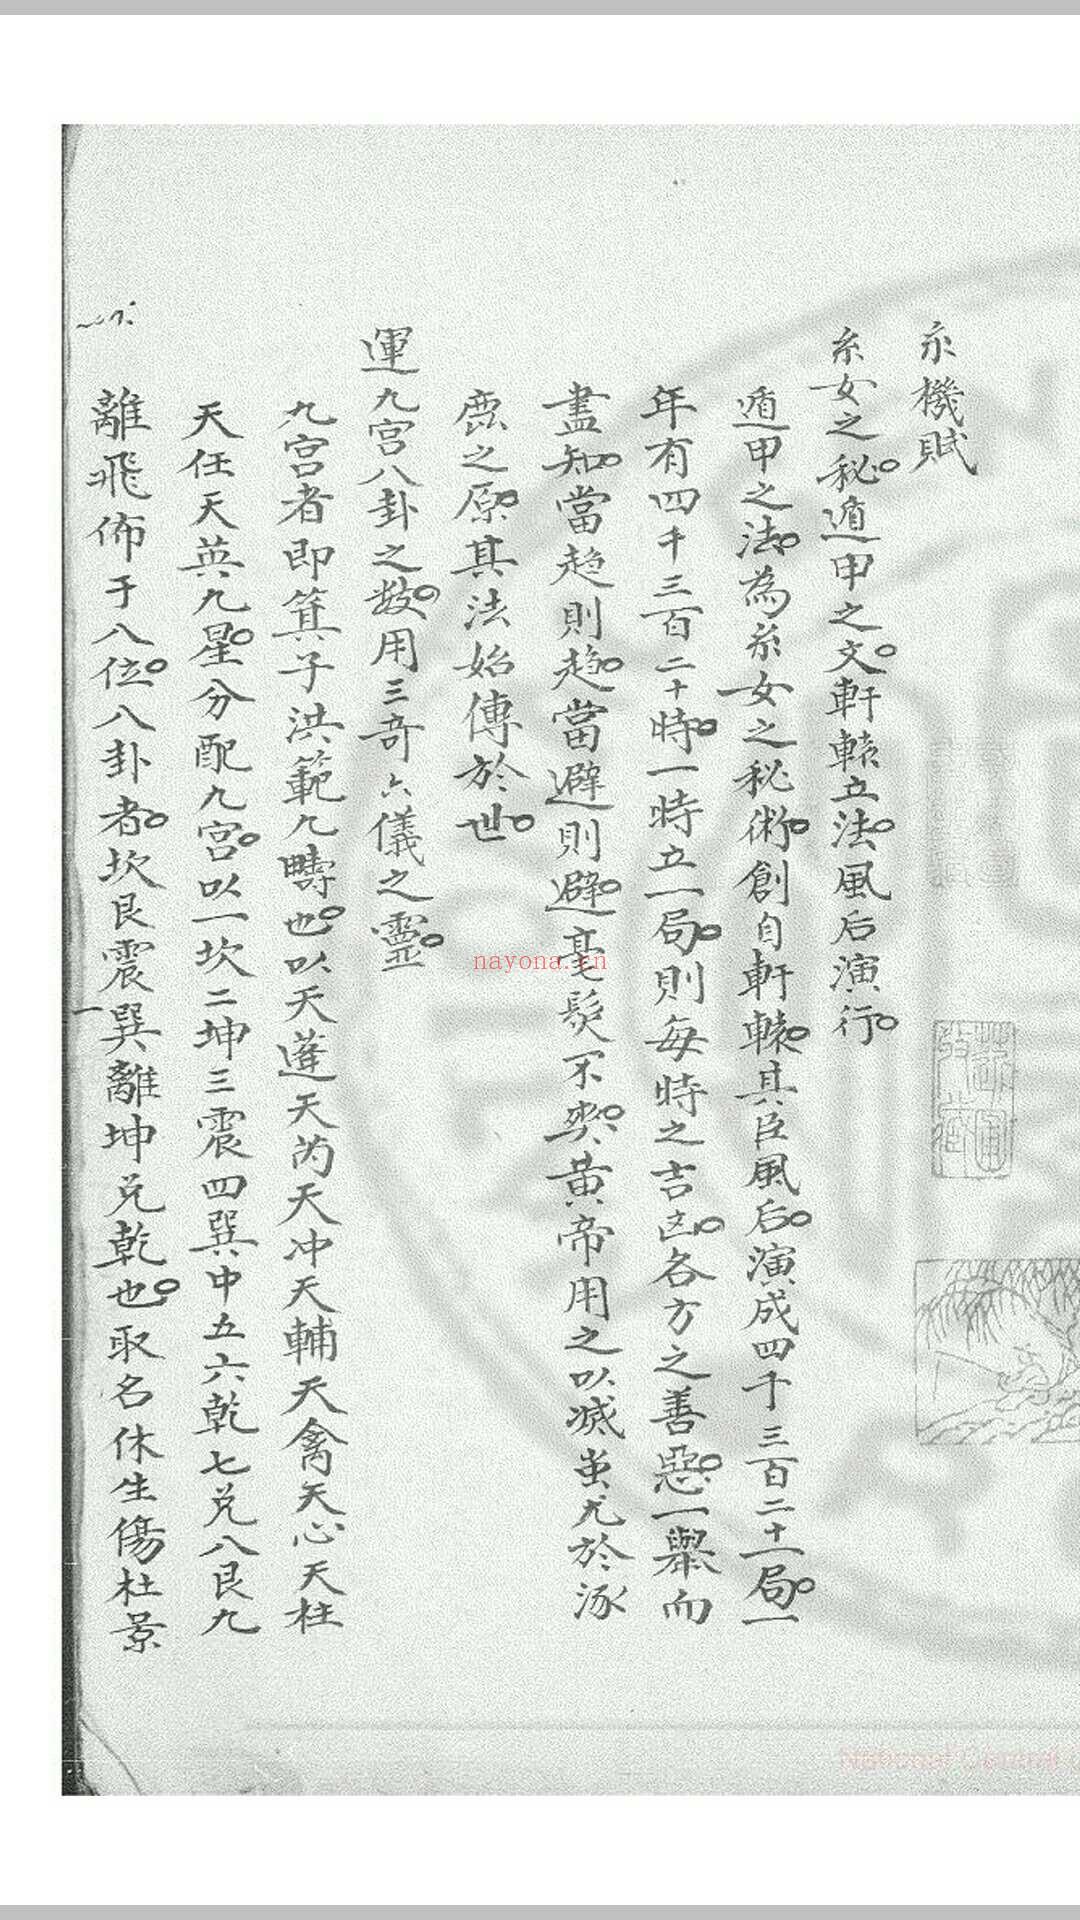 玄機賦
玄女之秘。遁甲之文。軒轅立法。風后演行。
遁甲之法。為玄女之秘術。創自軒轅。其臣風后。演成四千三百二十局。一
年有四千三百二十時。一時立一局。則每時之吉凶。各方之善惡。一舉而
盡知。當趋則趋。當避則避。毫髮不爽。黄帝用之以滅蚩尤於涿
鹿之原。其法始傳於世。
運九宮八卦之数。用三奇六儀之靈。
九宮者即箕子洪範九疇也。以天蓬天芮天冲天輔天禽天心天柱
天任天英九星。分配九宮。以一坎二坤三震四巽中五六乾七兑八艮九
離飛佈于八位。八卦者。坎艮震巽離坤兑乾也。取名休生傷杜景
一
nayona.cn
National Central